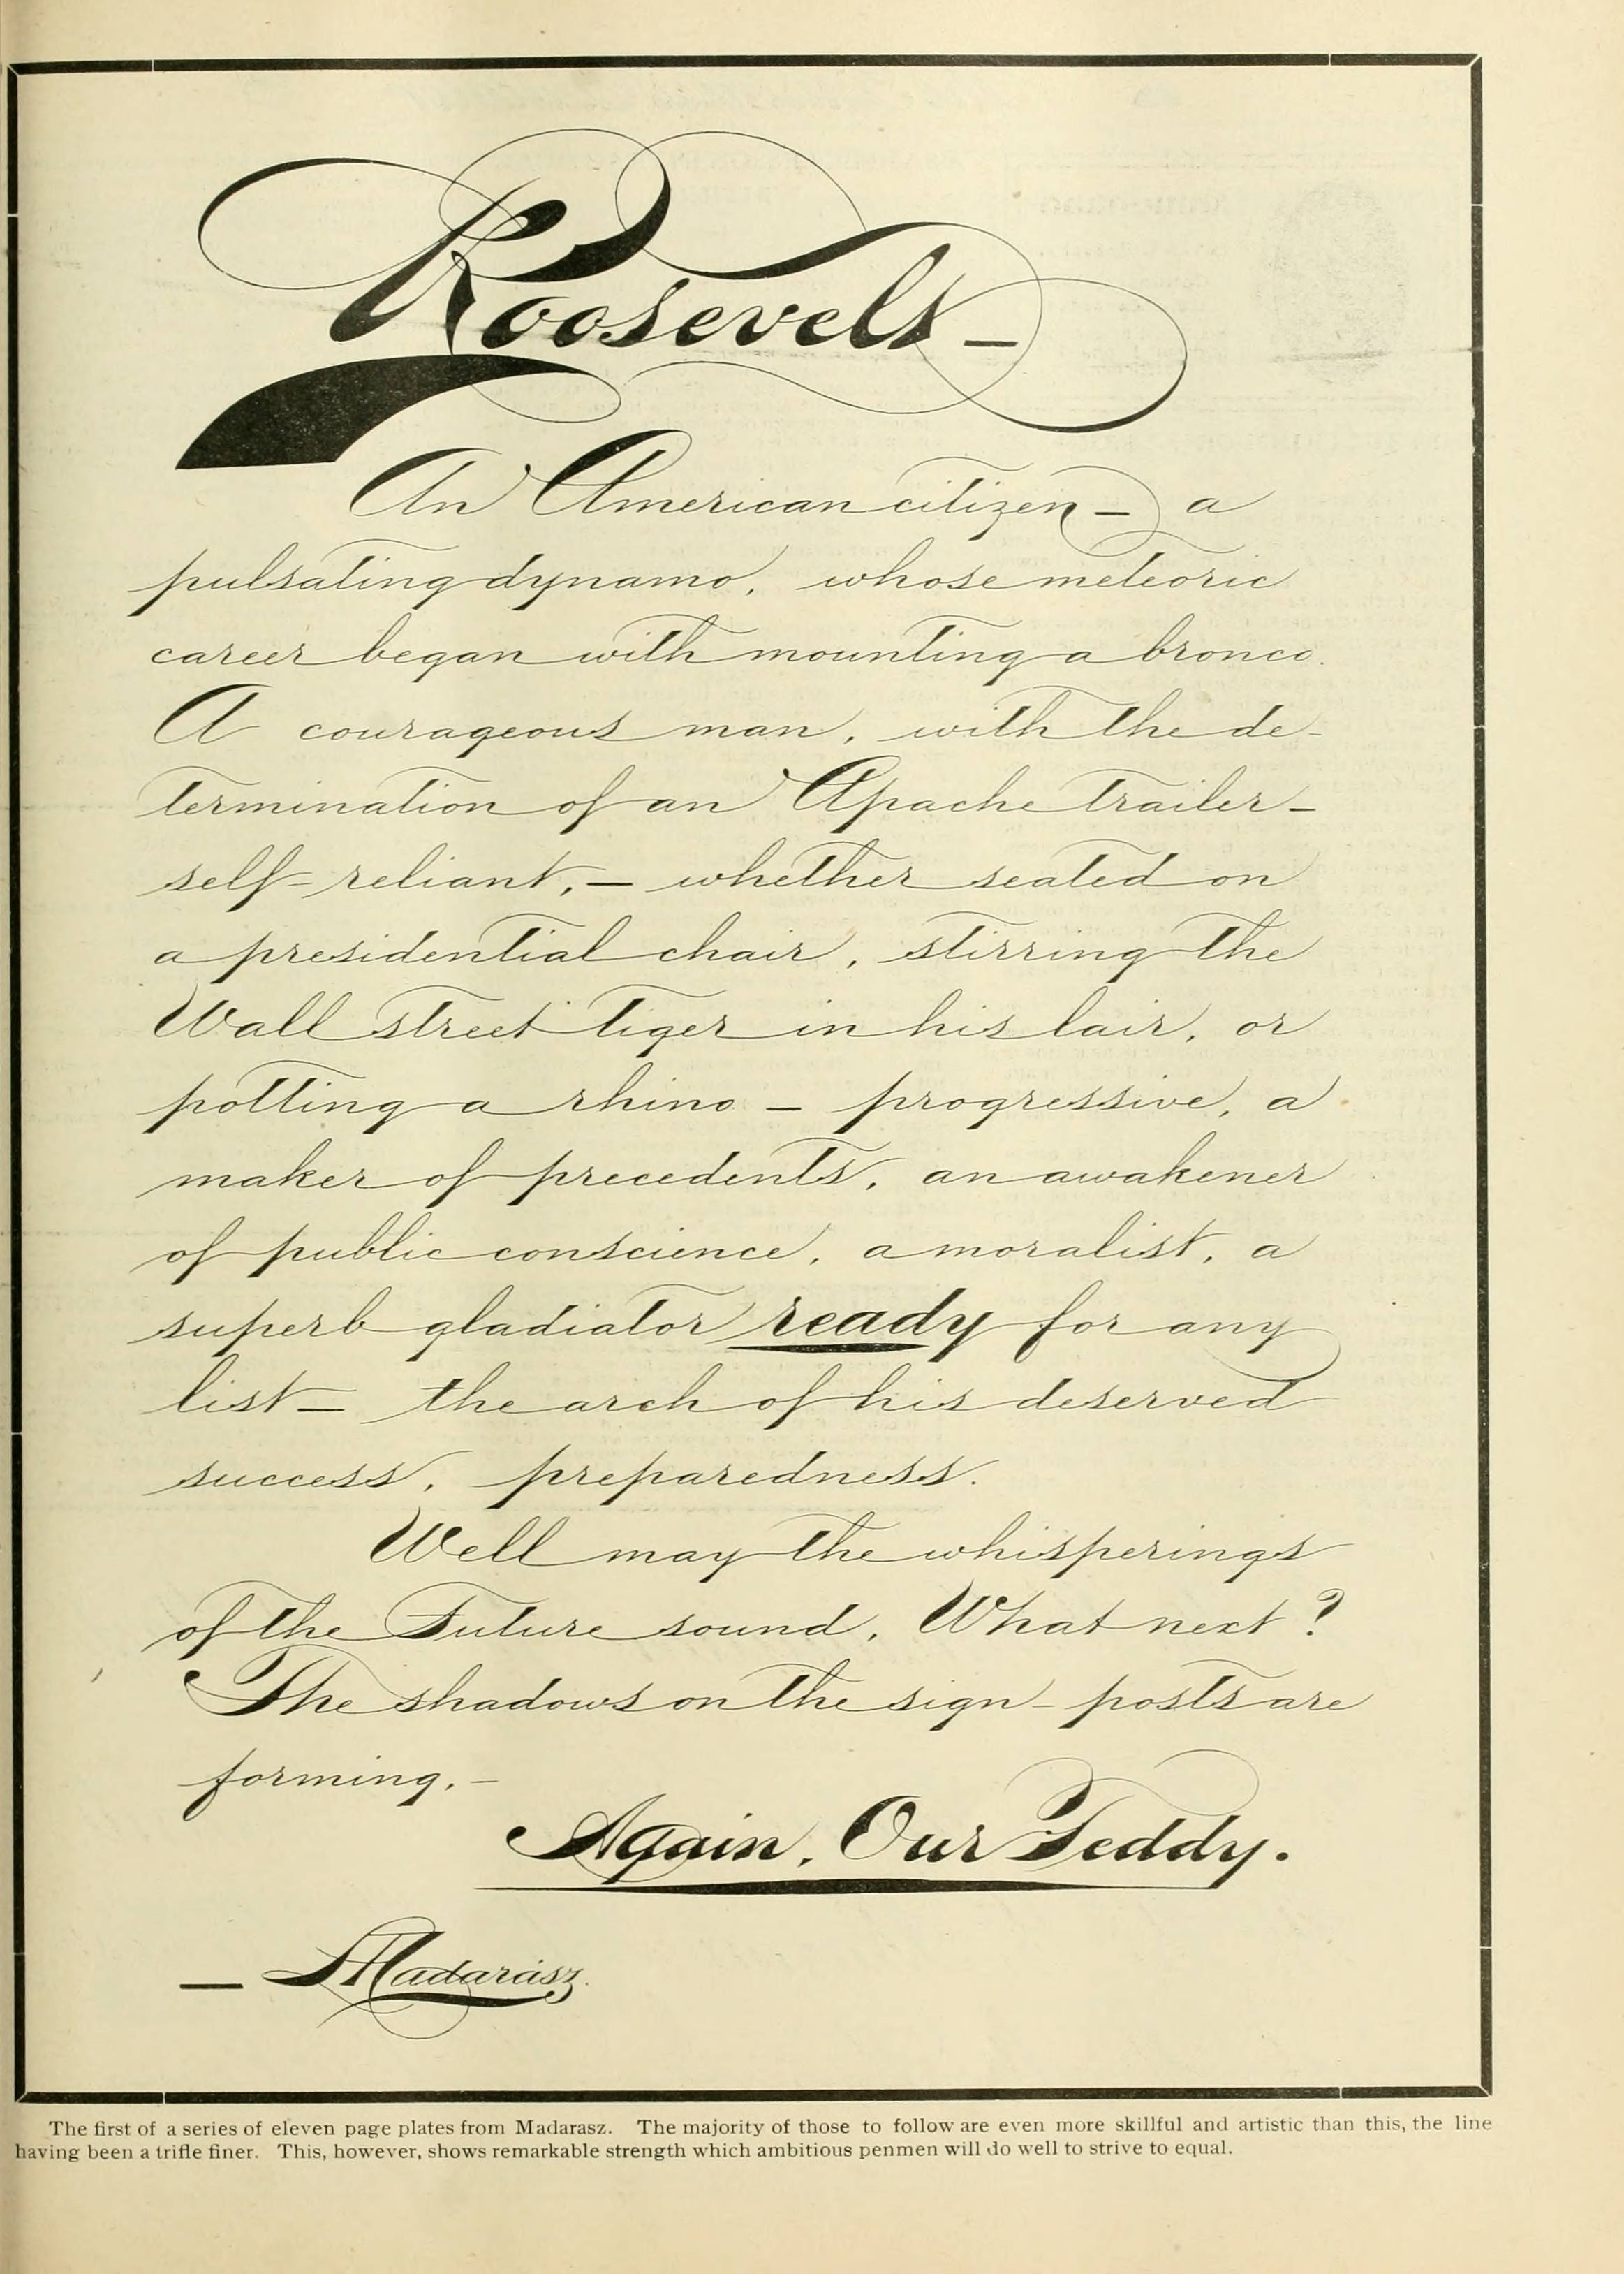 Roosevelt —
An American citizen — a
pulsating dynamo, whose meteoric
career began with mounting a bronco.
A courageous man, with the de-
termination of an Apache trailer —
self-reliant, — whether seated on
a presidential chair, stirring the
Wall street tiger in his lair, or
potting a rhino — progressive, a
maker of precedents, an awakener
of public conscience, a moralist, a
superb gladiator ready for any
list — the arch of his deserved
success, preparedness.
Well may the whisperings
of the Future sound, What next?
The shadows on the sign-posts are
forming, —
Again, Our Teddy.
— L Madarász.
The first of a series of eleven page plates from Madarasz. The majority of those to follow are even more skillful and artistic than this, the line
having been a trifle finer. This, however, shows remarkable strength which ambitious penmen will do well to strive to equal.